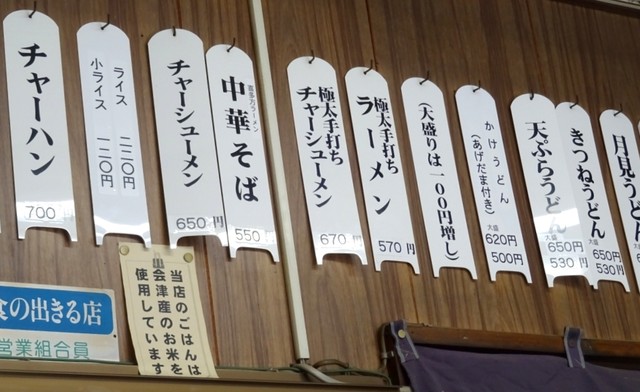 チャーハン
700
ライス 二二〇円
小ライス 一二〇円
チャーシューメン
650円
喜多方ラーメン
中華そば
550円
極太手打ち
チャーシューメン
670円
極太手打ち
ラーメン
570円
(大盛りは一〇〇円増し)
かけうどん
(あげだま付き)
大盛
620円
500円
天ぷらうどん
大盛
650円
530円
きつねうどん
大盛
650円
530円
月見うどん
当店のごはんは
会津産のお米を
使用しています
食の出きる店
営業組合員